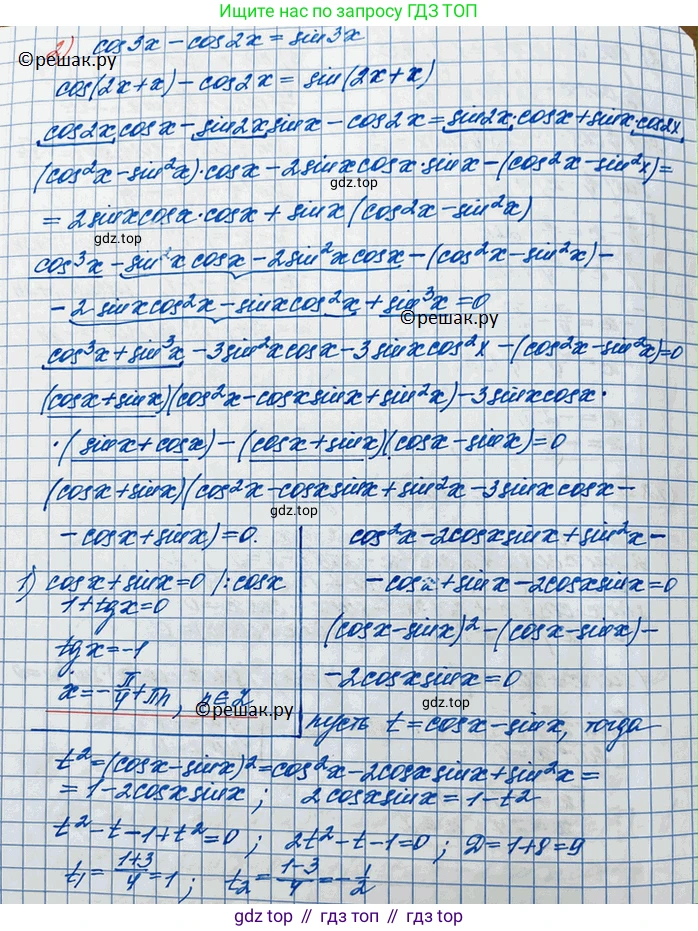 Ищите нас по запросу ГДЗ ТОП
2) cos3x - cos2x = sin3x
©решак.ру
cos(2x+x) - cos2x = sin(2x+x)
cos2x cosx - sin2x sinx - cos2x = sin2x·cosx + sinx·cos2x
(cos²x - sin²x)·cosx - 2sinxcosx·sinx - (cos²x - sin²x) =
gdz.top
= 2sinxcosx·cosx + sinx(cos2x - sin²x)
gdz.top
cos³x - sin²x cosx - 2sin²x cosx - (cos²x - sin²x) -
- 2 sinxcos²x - sinxcos²x + sin³x = 0
©решак.ру
cos³x + sin³x - 3sin²xcosx - 3sinxcos²x - (cos²x - sin²x) = 0
(cosx + sinx)(cos²x - cosxsinx + sin²x) - 3sinxcosx·
gdz.top
·(sinx + cosx) - (cosx + sinx)(cosx - sinx) = 0
(cosx + sinx)(cos²x - cosxsinx + sin²x - 3sinxcosx -
gdz.top
- cosx + sinx) = 0.
1) cosx + sinx = 0 /:cosx
1 + tgx = 0
tgx = -1
x = -π/4 + πn, n∈Z
©решак.ру
cos²x - 2cosxsinx + sin²x -
- cosx + sinx - 2cosxsinx = 0
gdz.top
(cosx - sinx)² - (cosx - sinx) -
- 2cosxsinx = 0
gdz.top
пусть t = cosx - sinx, тогда
t² = (cosx - sinx)² = cos²x - 2cosxsinx + sin²x =
= 1 - 2cosxsinx; 2cosxsinx = 1 - t²
t² - t - 1 + t² = 0; 2t² - t - 1 = 0; D = 1 + 8 = 9
t₁ = (1+3)/4 = 1; t₂ = (1-3)/4 = -1/2
gdz top // гдз топ // gdz.top // gdz top